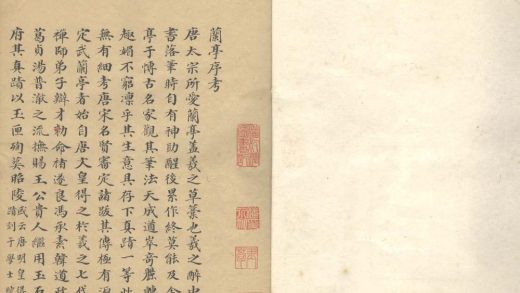 蘭亭序考
唐太宗所愛蘭亭蓋羲之草藁也羲之醉中
書落筆時自有神助醒後累作終莫能及余
亭于博古名家觀其筆法天成道岸奇
趣媚不窮凛乎其生意具存下真蹟一等此
無有細考唐宋名賢審定諸跋其傳極有
定武蘭亭者始自唐天皇得之於羲之七代
禪師弟子辯才勅命楮遂良馮承素韓道政
葛貞湯普澈之流搨賜王公貴人繼用玉石
府其真蹟以玉匣殉葬昭陵或云唐明皇得
蹟刻于學士